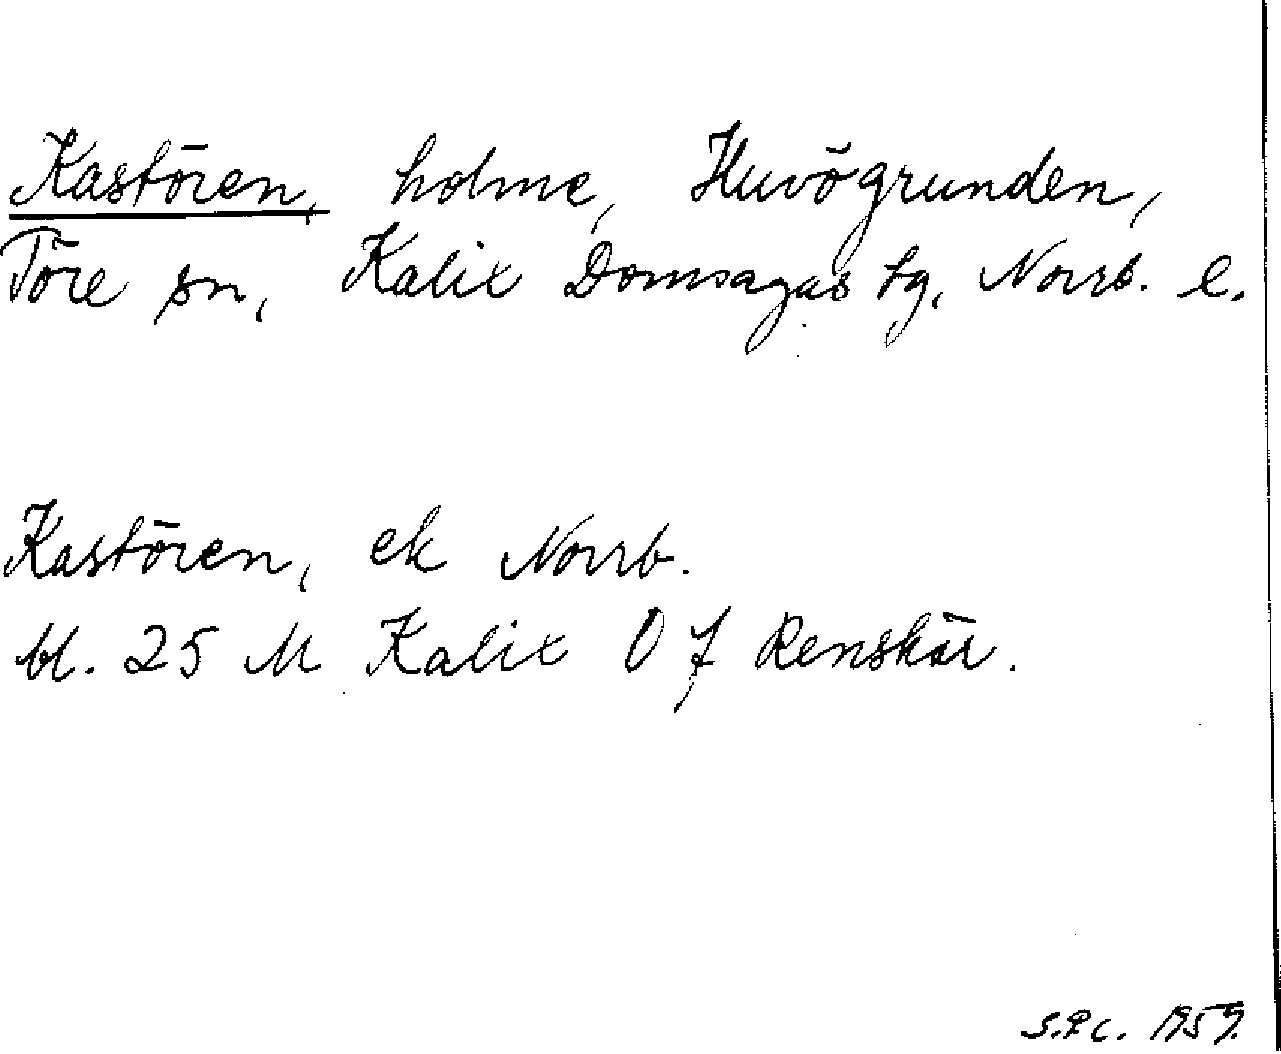 Kastören, holme, Huvögrunden,
Töre sn, Kalix Domsagas tg, Norrb. l.
Kastören, ek Norrb.
bl. 25 M Kalix O f Renskär.
S.P.C. 1959.